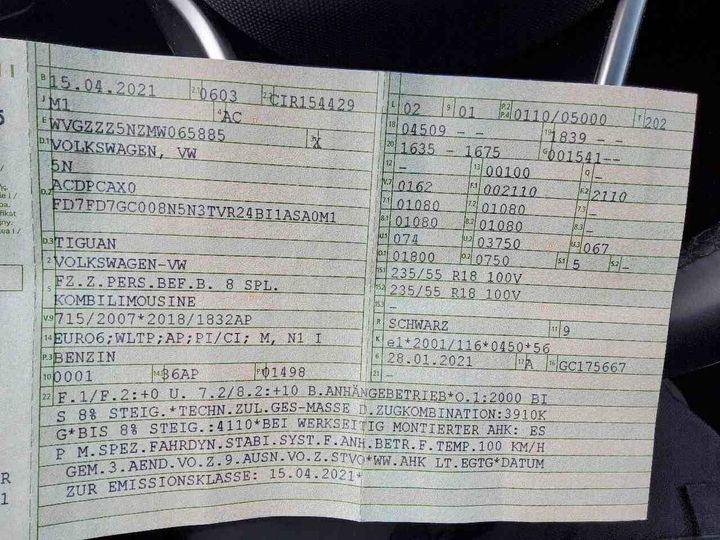 B 15.04.2021 2.1 0603 2.2 CIR154429
J M1 4 AC
E WVGZZZ5NZMW065885 3 X
D.1 VOLKSWAGEN, VW
5N
D.2 ACDPCAX0
FD7FD7GC008N5N3TVR24BI1ASA0M1
D.3 TIGUAN
2 VOLKSWAGEN-VW
5 FZ.Z.PERS.BEF.B. 8 SPL.
KOMBILIMOUSINE
V.9 715/2007*2018/1832AP
14 EURO6;WLTP;AP;PI/CI; M, N1 I
P.3 BENZIN
10 0001 14.1 36AP P.1 01498
L 02 9 01 P.2 P.4 0110/05000 T 202
18 04509 - - 19 1839 - -
20 1635 - 1675 G 001541--
12 - 13 00100 Q -
V.7 0162 F.1 002110 F.2 2110
7.1 01080 7.2 01080 7.3 -
8.1 01080 8.2 01080 8.3 -
U.1 074 U.2 03750 U.3 067
O.1 01800 O.2 0750 S.1 5 S.2 -
15.1 235/55 R18 100V
15.2 235/55 R18 100V
15.3 -
R SCHWARZ 11 9
K e1*2001/116*0450*56
6 28.01.2021 17 A 16 GC175667
21 -
22 F.1/F.2:+0 U. 7.2/8.2:+10 B.ANHÄNGEBETRIEB*O.1:2000 BI
S 8% STEIG.*TECHN.ZUL.GES-MASSE D.ZUGKOMBINATION:3910K
G*BIS 8% STEIG.:4110*BEI WERKSEITIG MONTIERTER AHK: ES
P M.SPEZ.FAHRDYN.STABI.SYST.F.ANH.BETR.F.TEMP.100 KM/H
GEM.3.AEND.VO.Z.9.AUSN.VO.Z.STVO*WW.AHK LT.EGTG*DATUM
ZUR EMISSIONSKLASSE: 15.04.2021*